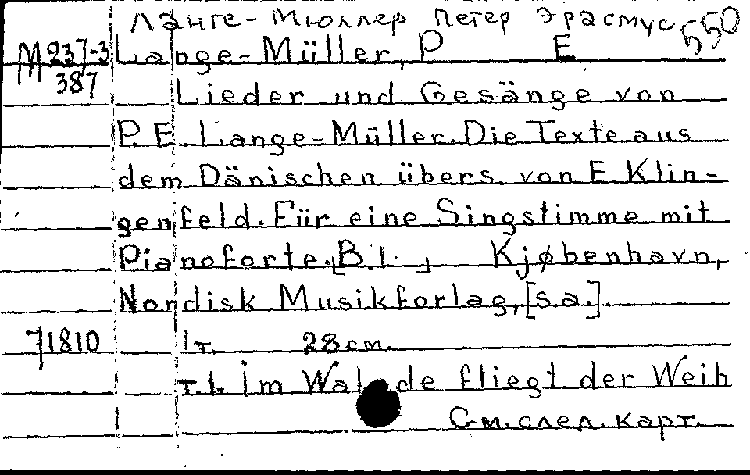 Ланге-Мюллер Петер Эрасмус 550
М 237-3 Lange-Müller, P E
387
Lieder und Gesänge von
P. E. Lange-Müller. Die Texte aus
dem Dänischen übers. von E. Klin-
genfeld. Für eine Singstimme mit
Pianoforte. [B. 1. ] Kjøbenhavn,
Nordisk Musikforlag, [s.a.].
71810 1 т. 28 см.
т.1. Im Walde fliegt der Weih
См. след. карт.